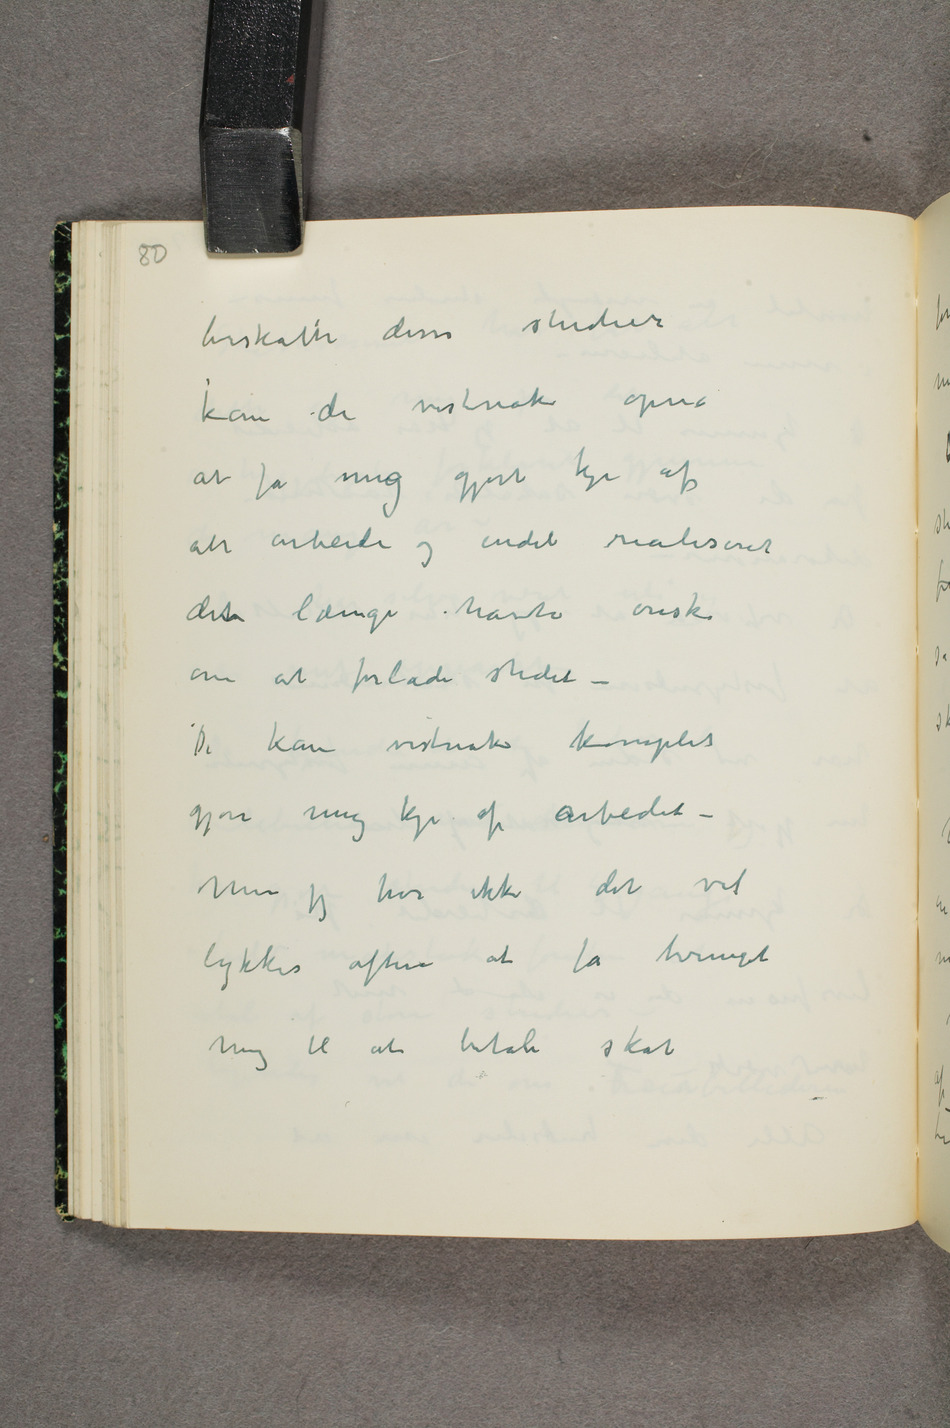 80
beskatte disse studier
kan de vistnok opnå
at få mig gjort kje af
alt arbeide og endet realiseret
det længe havte ønske
om at forlade stedet –
De kan vistnok komplet
gjøre mig kje af arbedet –
Men jeg tror ikke det vil
lykkes oftere at få tvunget
mig til at betale skat